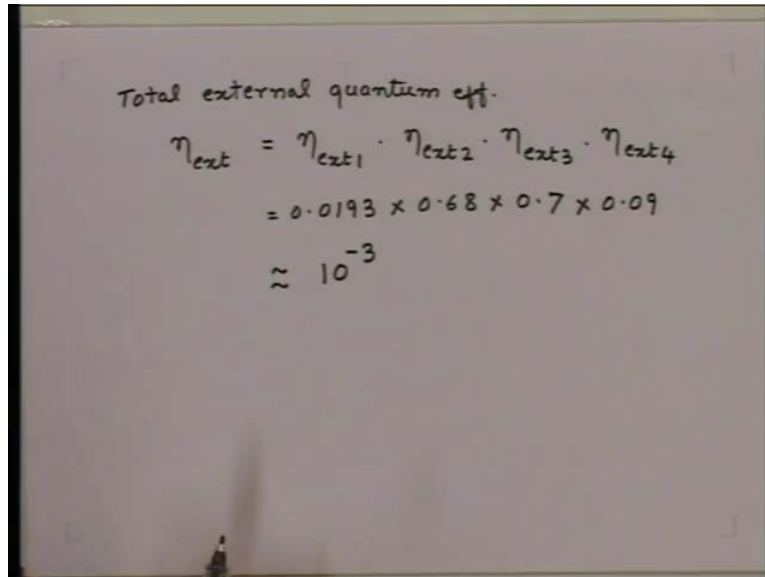 Total external quantum eff.
η_ext = η_ext1 · η_ext2 · η_ext3 · η_ext4
= 0.0193 × 0.68 × 0.7 × 0.09
≈ 10⁻³